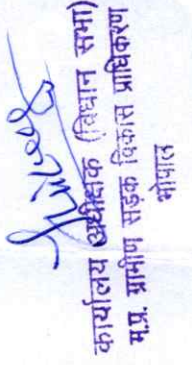 कार्यालय अधीक्षक (विधान सभा)
म.प्र. ग्रामीण सड़क विकास प्राधिकरण
भोपाल